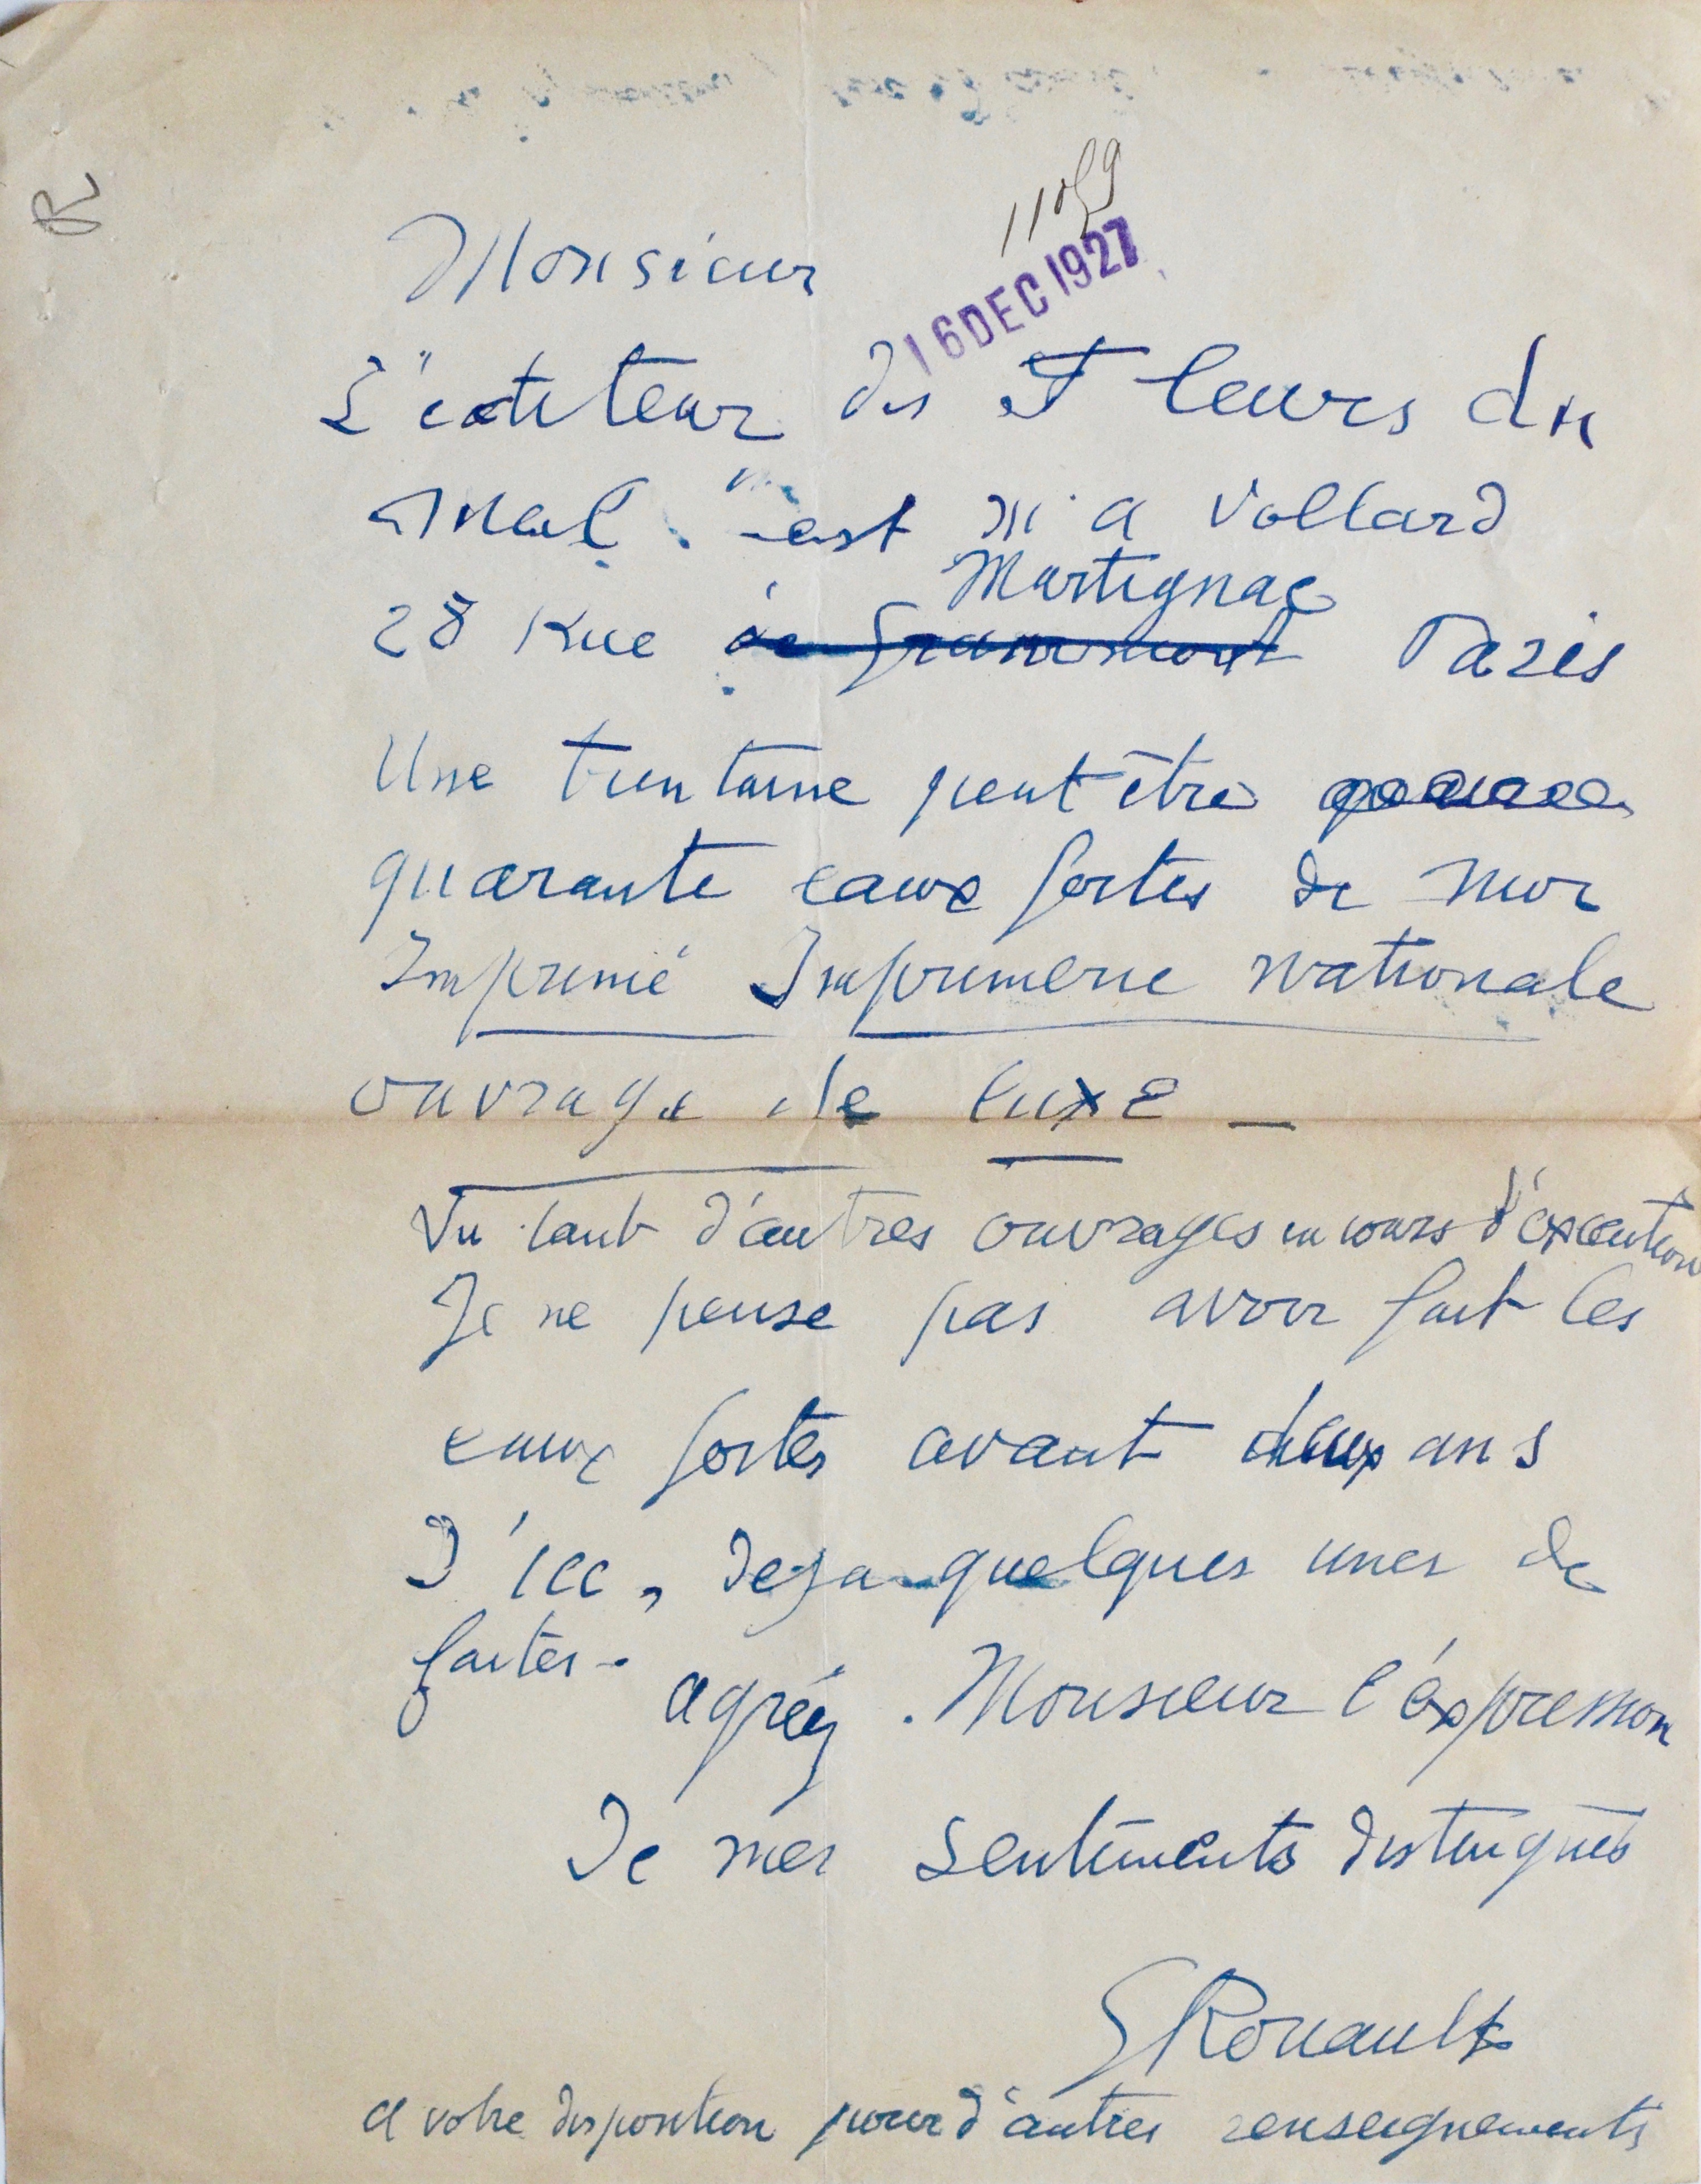 R
11059
16 DEC 1927
Monsieur
L'éditeur des Fleurs du
Mal" est M A Vollard
Martignac
28 Rue de Grammont Paris
Une trentaine peut être
quarante eaux fortes de moi
Imprimé Imprimerie nationale
ouvrage de luxe –
Vu tant d'autres ouvrages en cours d'exécution
Je ne pense pas avoir fait les
eaux fortes avant deux ans
D'ici, deja quelques unes de
faites –
agréez. Monsieur l'éxpression
De mes sentiments distingués
GRouault
a votre disposition pour d'autres renseignements